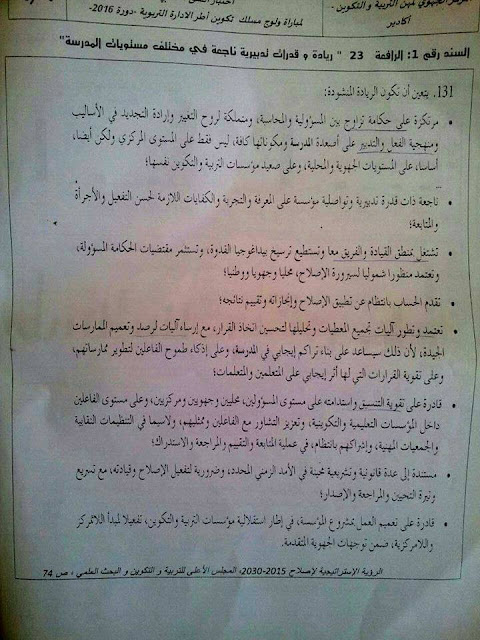 لمهن التربية و التكوين -
أكادير
لمباراة ولوج مسلك تكوين أطر الادارة التربوية -دورة 2016-
السند رقم 1: الرافعة 23 " ريادة و قدرات تدبيرية ناجعة في مختلف مستويات المدرسة"
131. يتعين أن تكون الريادة المنشودة:
• مرتكزة على حكامة تزاوج بين المسؤولية والمحاسبة، ومتملكة لروح التغيير وإرادة التجديد في الأساليب
ومنهجية الفعل والتدبير على أصعدة المدرسة ومكوناتها كافة، ليس فقط على المستوى المركزي ولكن أيضا،
أساسا، على المستويات الجهوية والمحلية، وعلى صعيد مؤسسات التربية والتكوين نفسها؛
• ناجعة ذات قدرة تدبيرية وتواصلية مؤسسة على المعرفة والتجربة والكفايات اللازمة لحسن التفعيل والأجرأة
والمتابعة؛
• تشتغل بمنطق القيادة والفريق معا وتستطيع ترسيخ بيداغوجيا القدوة، وتستثمر مقتضيات الحكامة المسؤولة،
وتعتمد منظورا شموليا لسيرورة الإصلاح، محليا وجهويا ووطنيا؛
• تقدم الحساب بانتظام عن تطبيق الإصلاح وإنجازاته وتقييم نتائجه؛
• تعتمد وتطور آليات تجميع المعطيات وتحليلها لتحسين اتخاذ القرار، مع إرساء آليات لرصد وتعميم الممارسات
الجيدة، لأن ذلك سيساعد على بناء تراكم إيجابي في المدرسة، وعلى إذكاء طموح الفاعلين لتطوير ممارساتهم،
وعلى تقوية القرارات التي لها أثر إيجابي على المتعلمين والمتعلمات؛
• قادرة على تقوية التنسيق واستدامته على مستوى المسؤولين، محليين وجهويين ومركزيين، وعلى مستوى الفاعلين
داخل المؤسسات التعليمية والتكوينية، وتعزيز التشاور مع الفاعلين وممثليهم، ولاسيما في التنظيمات النقابية
والجمعيات المهنية، وإشراكهم بانتظام، في عملية المتابعة والتقييم والمراجعة والاستدراك؛
• مستندة إلى عدة قانونية وتشريعية محينة في الأمد الزمني المحدد، وضرورية لتفعيل الإصلاح وقيادته، مع تسريع
وتيرة التحيين والمراجعة والإصدار؛
• قادرة على تعميم العمل بمشروع المؤسسة، في إطار استقلالية مؤسسات التربية والتكوين، تفعيلا لمبدأ اللاتمركز
واللامركزية، ضمن توجهات الجهوية المتقدمة.
الرؤية الإستراتيجية لإصلاح 2015-2030، المجلس الأعلى للتربية و التكوين و البحث العلمي ، ص 74